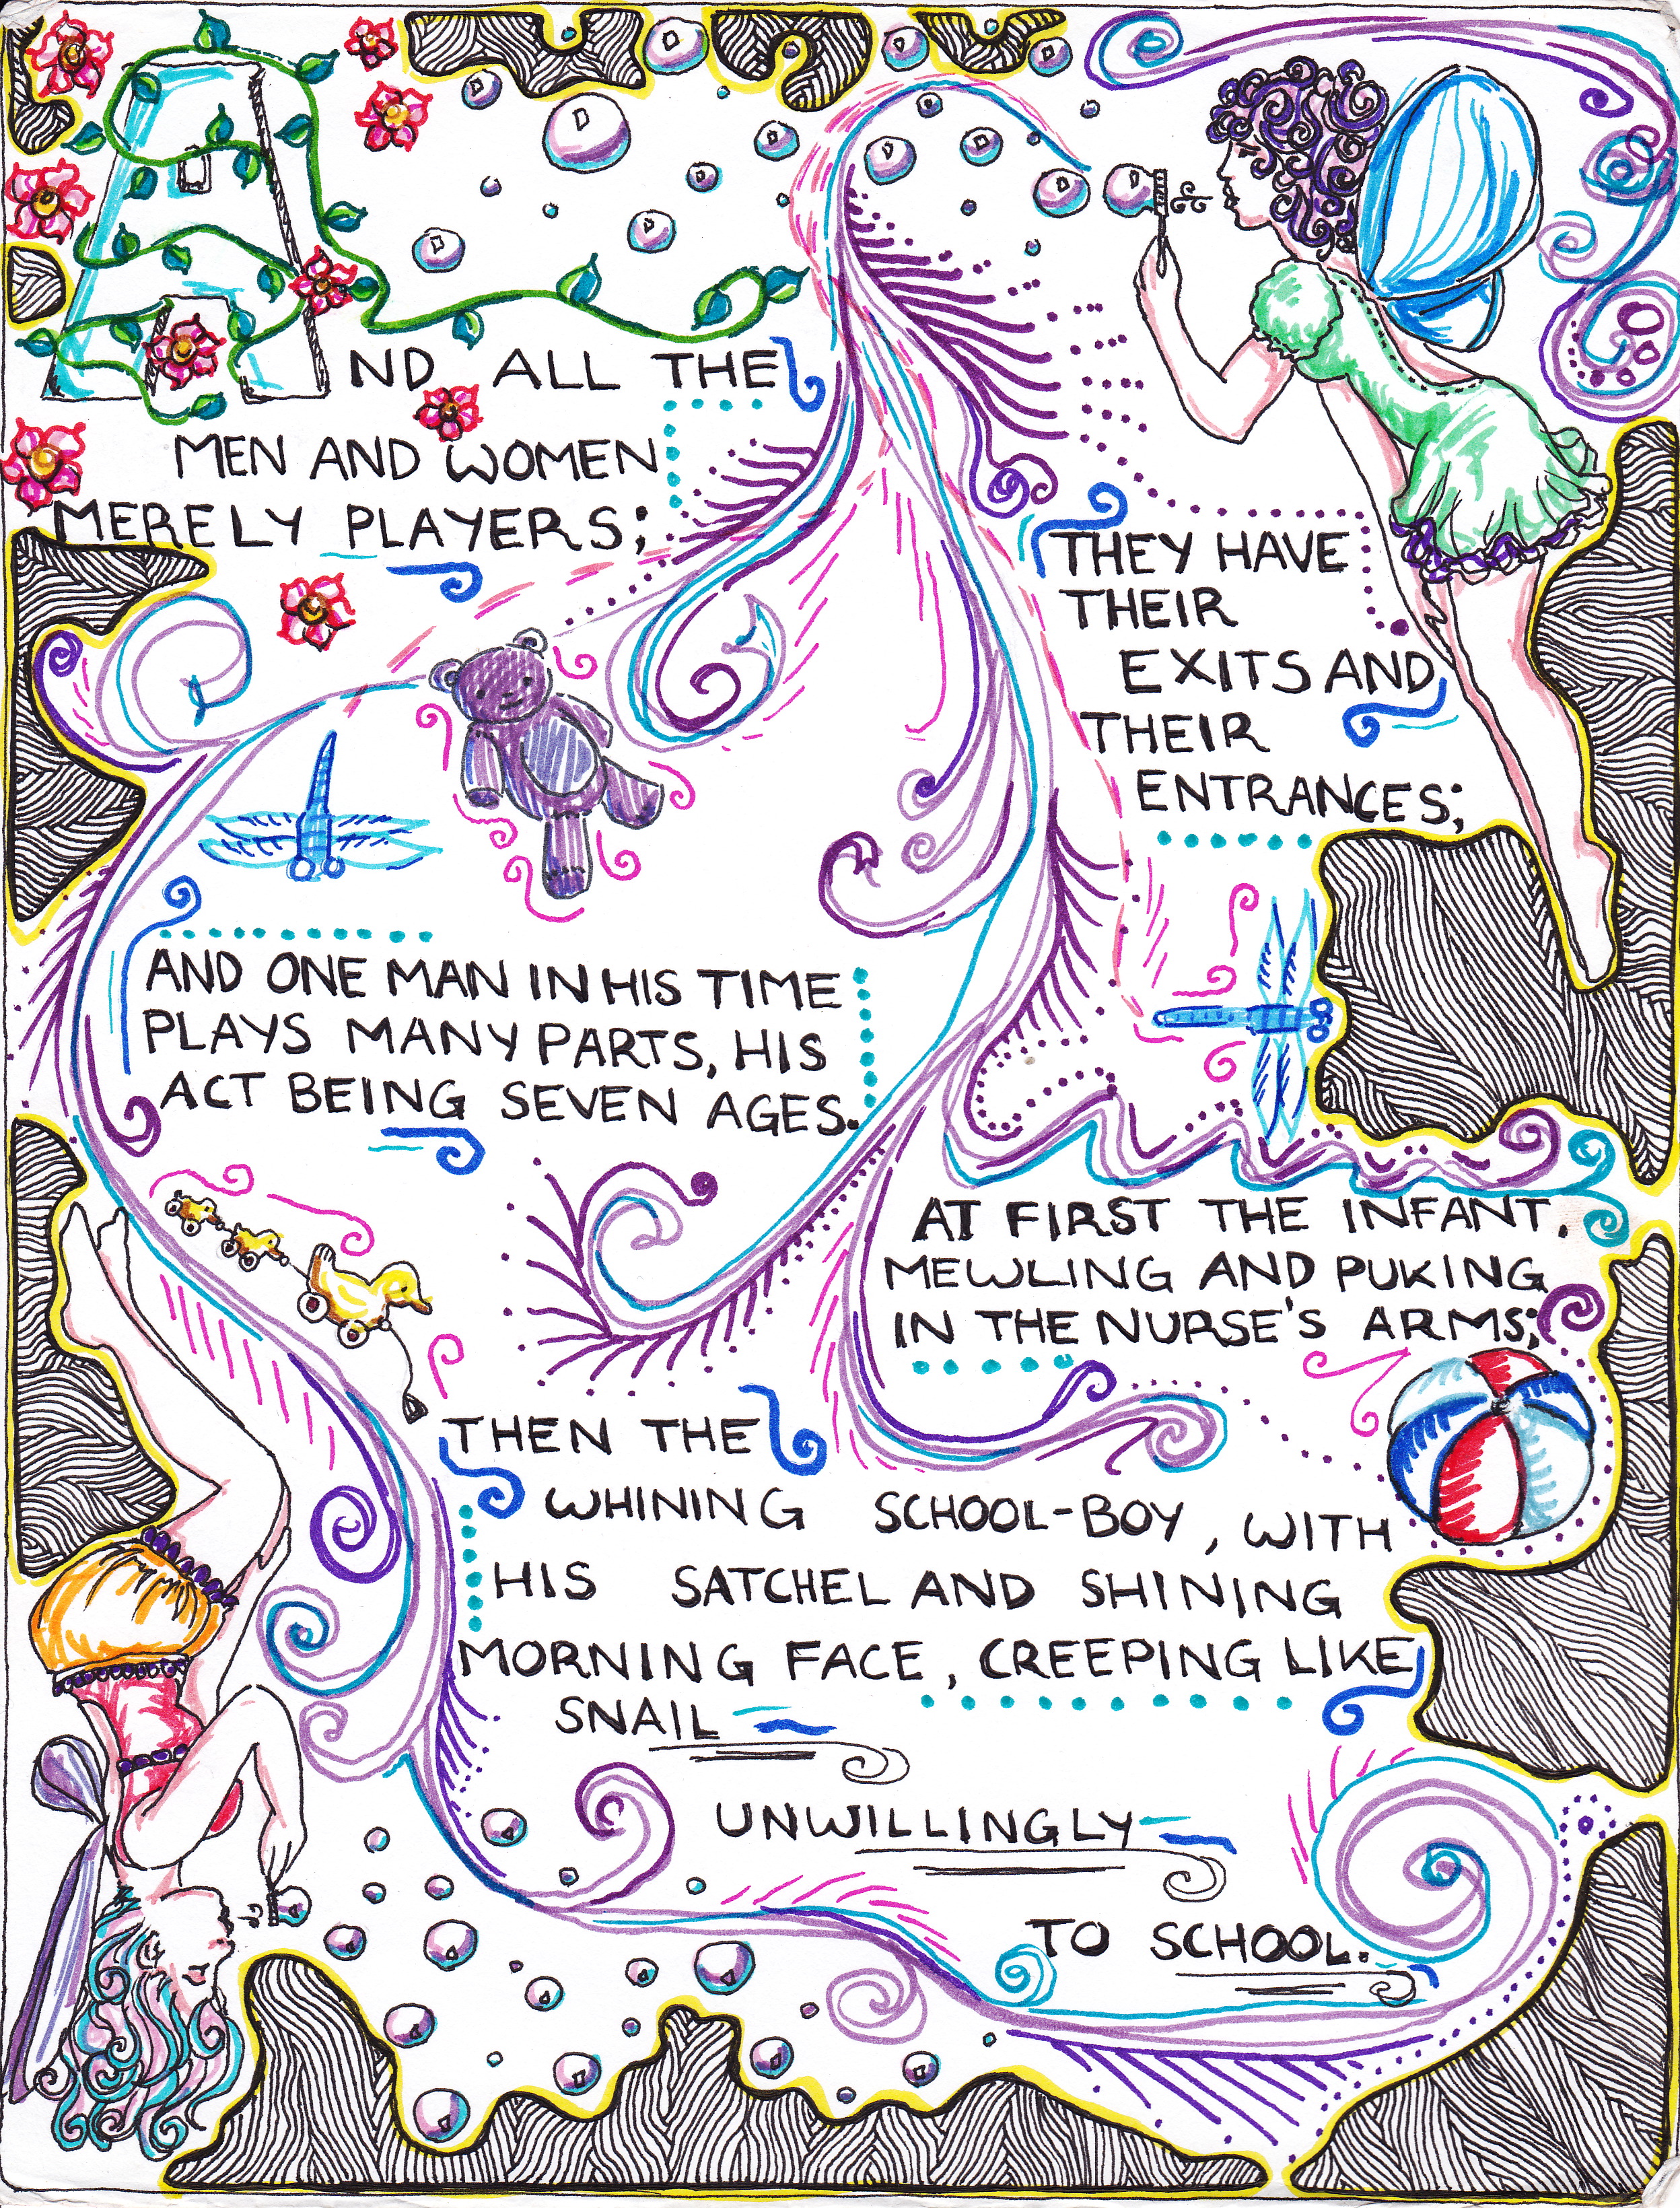 AND ALL THE
MEN AND WOMEN
MERELY PLAYERS;
THEY HAVE
THEIR
EXITS AND
THEIR
ENTRANCES;
AND ONE MAN IN HIS TIME
PLAYS MANY PARTS, HIS
ACT BEING SEVEN AGES.
AT FIRST THE INFANT,
MEWLING AND PUKING
IN THE NURSE'S ARMS;
THEN THE
WHINING SCHOOL-BOY, WITH
HIS SATCHEL AND SHINING
MORNING FACE, CREEPING LIKE
SNAIL
UNWILLINGLY
TO SCHOOL.